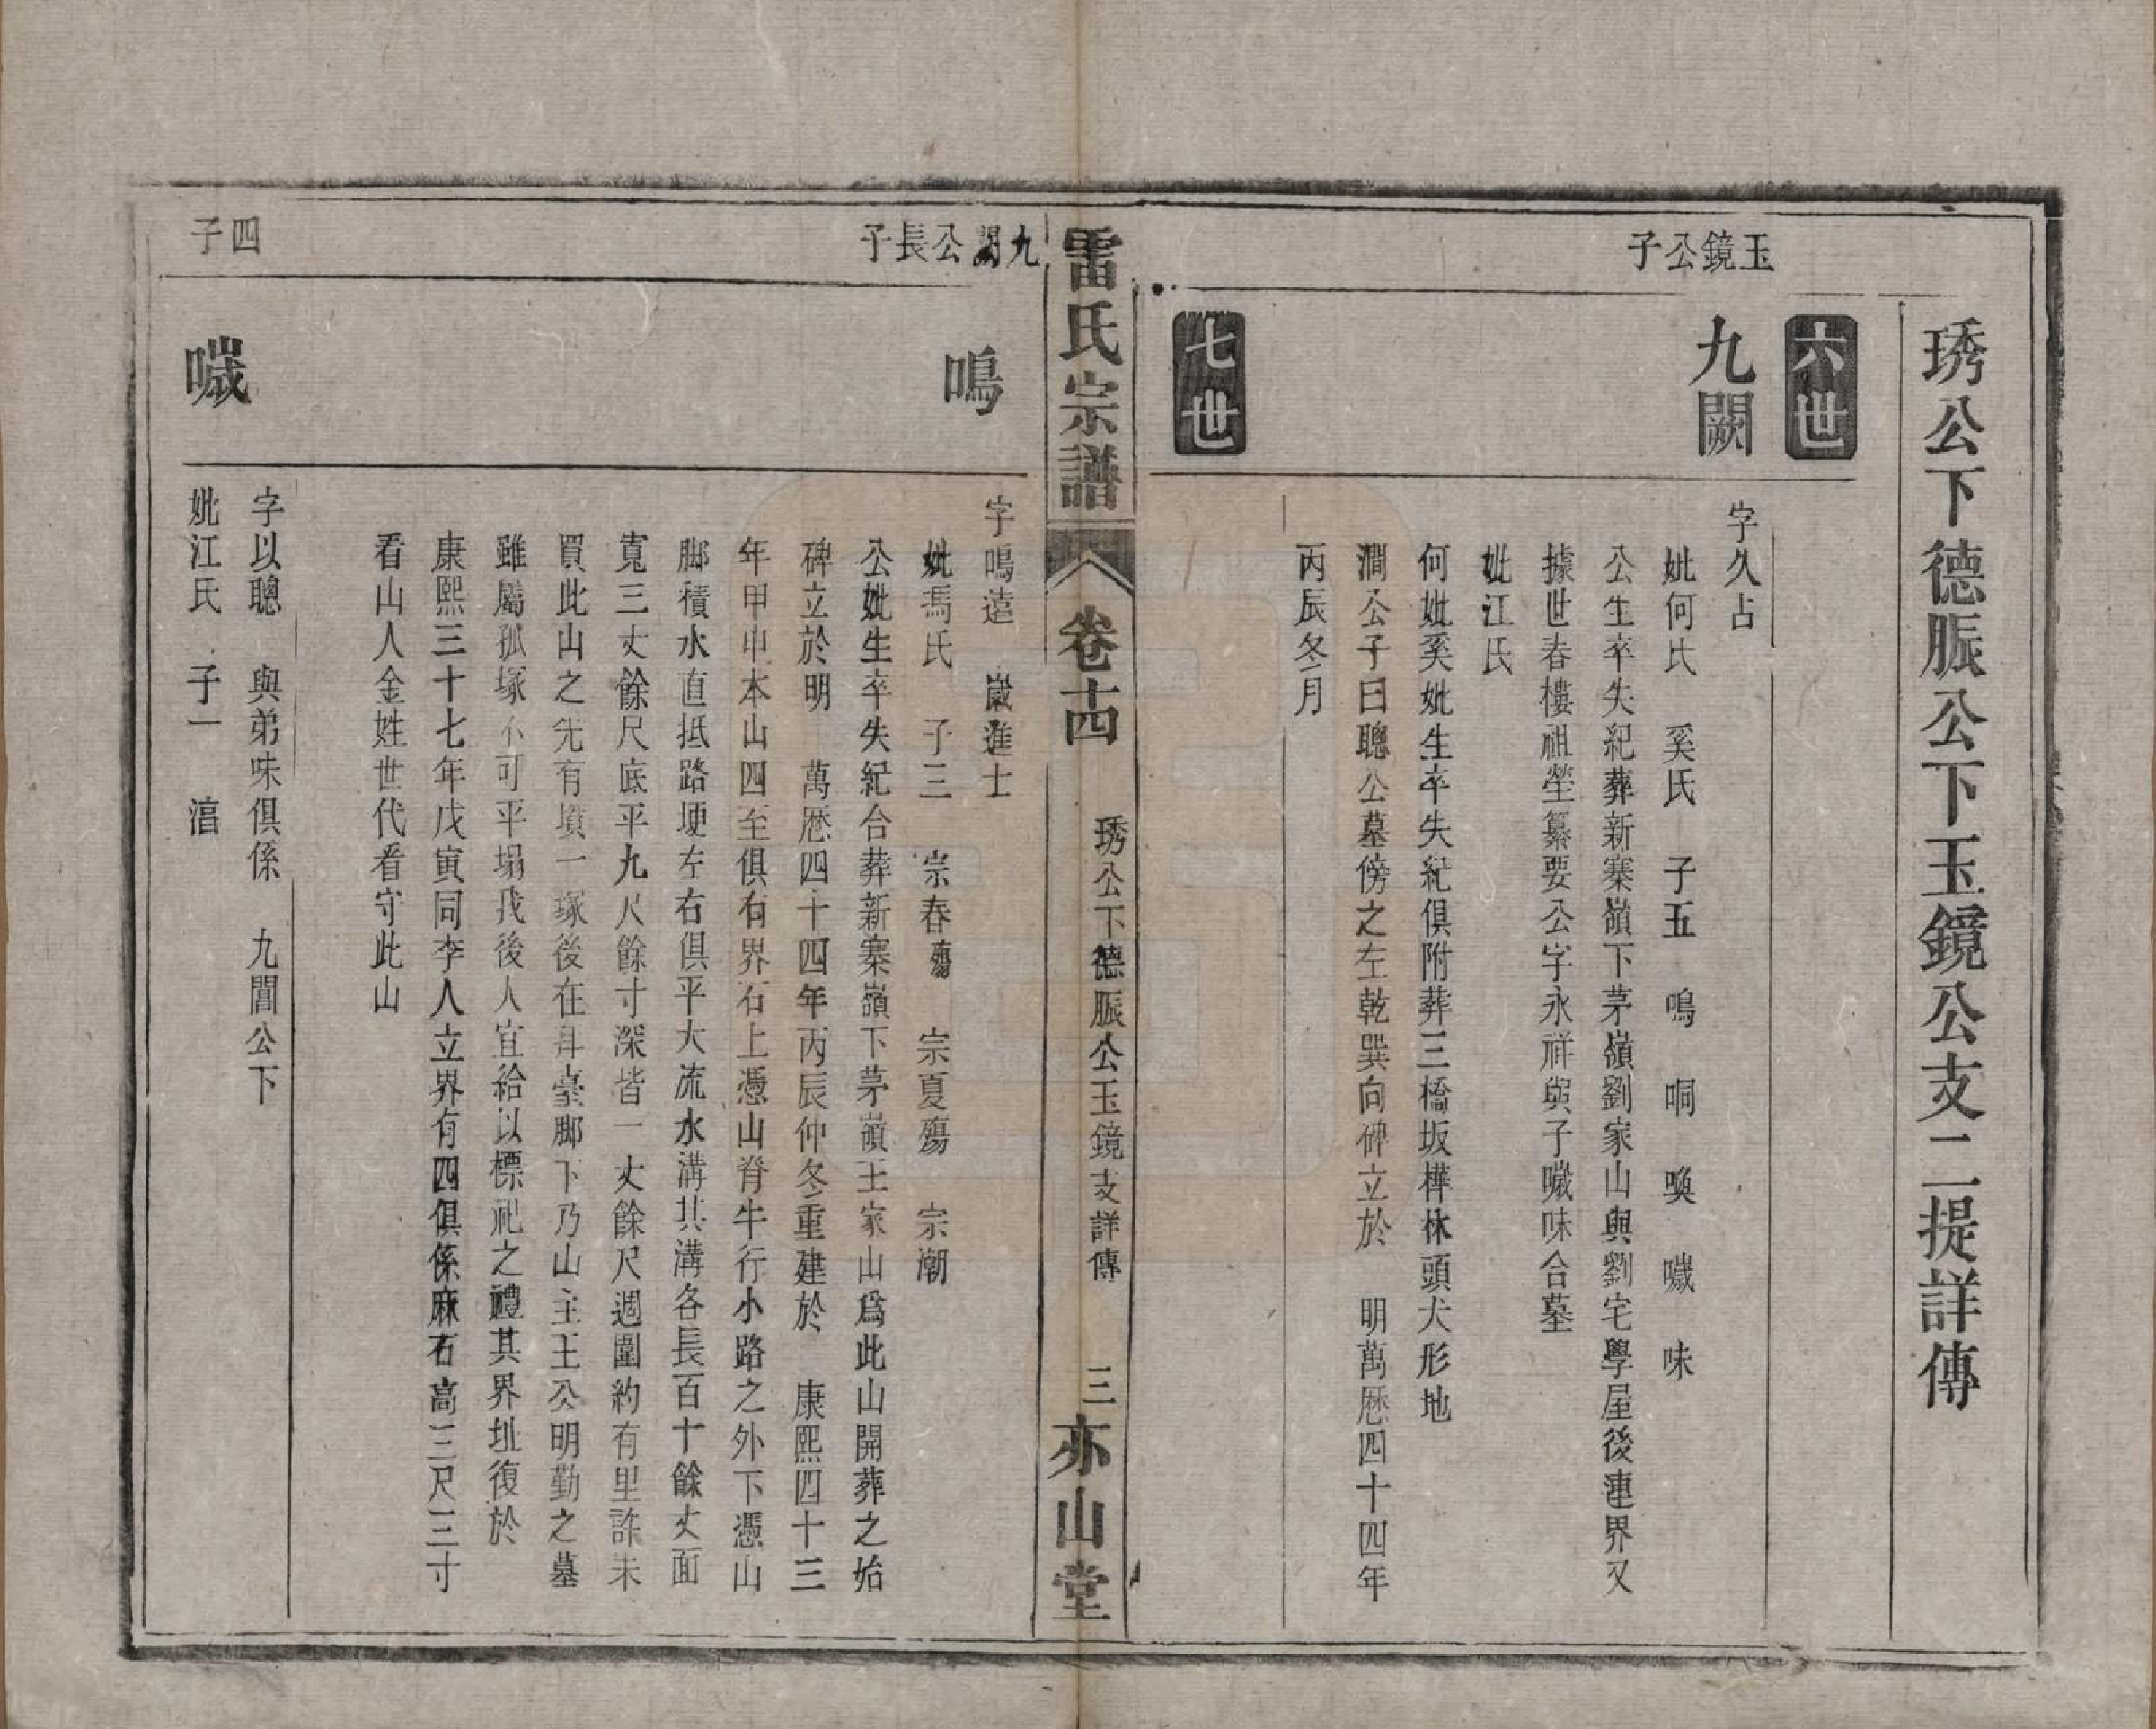 琇公下德脤公下玉鏡公支二提詳傳
六世
玉鏡公子
九闕
字久占
妣何氏　奚氏　子五　鳴　哃　喚　噦　味
公生卒失紀葬新寨嶺下茅嶺劉家山與劉宅學屋後連界又
據世春樓祖塋纂要公字永祥與子噦味合墓
妣江氏
何妣奚妣生卒失紀俱附葬三橋坂樺林頭犬形地
澗公子曰聰公墓傍之左乾巽向碑立於　明萬厯四十四年
丙辰冬月
七世
雷氏宗譜
卷十四
琇公下德脤公玉鏡支詳傳
三
亦山堂
九闕公長子
鳴
字鳴遠　歲進士
妣馮氏　子三　宗春殤　宗夏殤　宗潮
公妣生卒失紀合葬新寨嶺下茅嶺王家山爲此山開葬之始
碑立於明　萬厯四十四年丙辰仲冬重建於　康熙四十三
年甲申申本山四至俱有界石上憑山脊牛行小路之外下憑山
脚積水直抵路埂左右俱平大流水溝其溝各長百十餘丈面
寬三丈餘尺底平九尺餘寸深皆一丈餘尺週圍約有里許未
買此山之先有墳一塚後在斗臺脚下乃山主王公明勤之墓
雖屬孤塚不可平塌我後人宜給以標祀之禮其界址復於
康熙三十七年戊寅同李人立界有四俱係麻石高三尺三寸
看山人金姓世代看守此山
四子
噦
字以聰　與弟味俱係　九閶公下
妣江氏　子一　湻